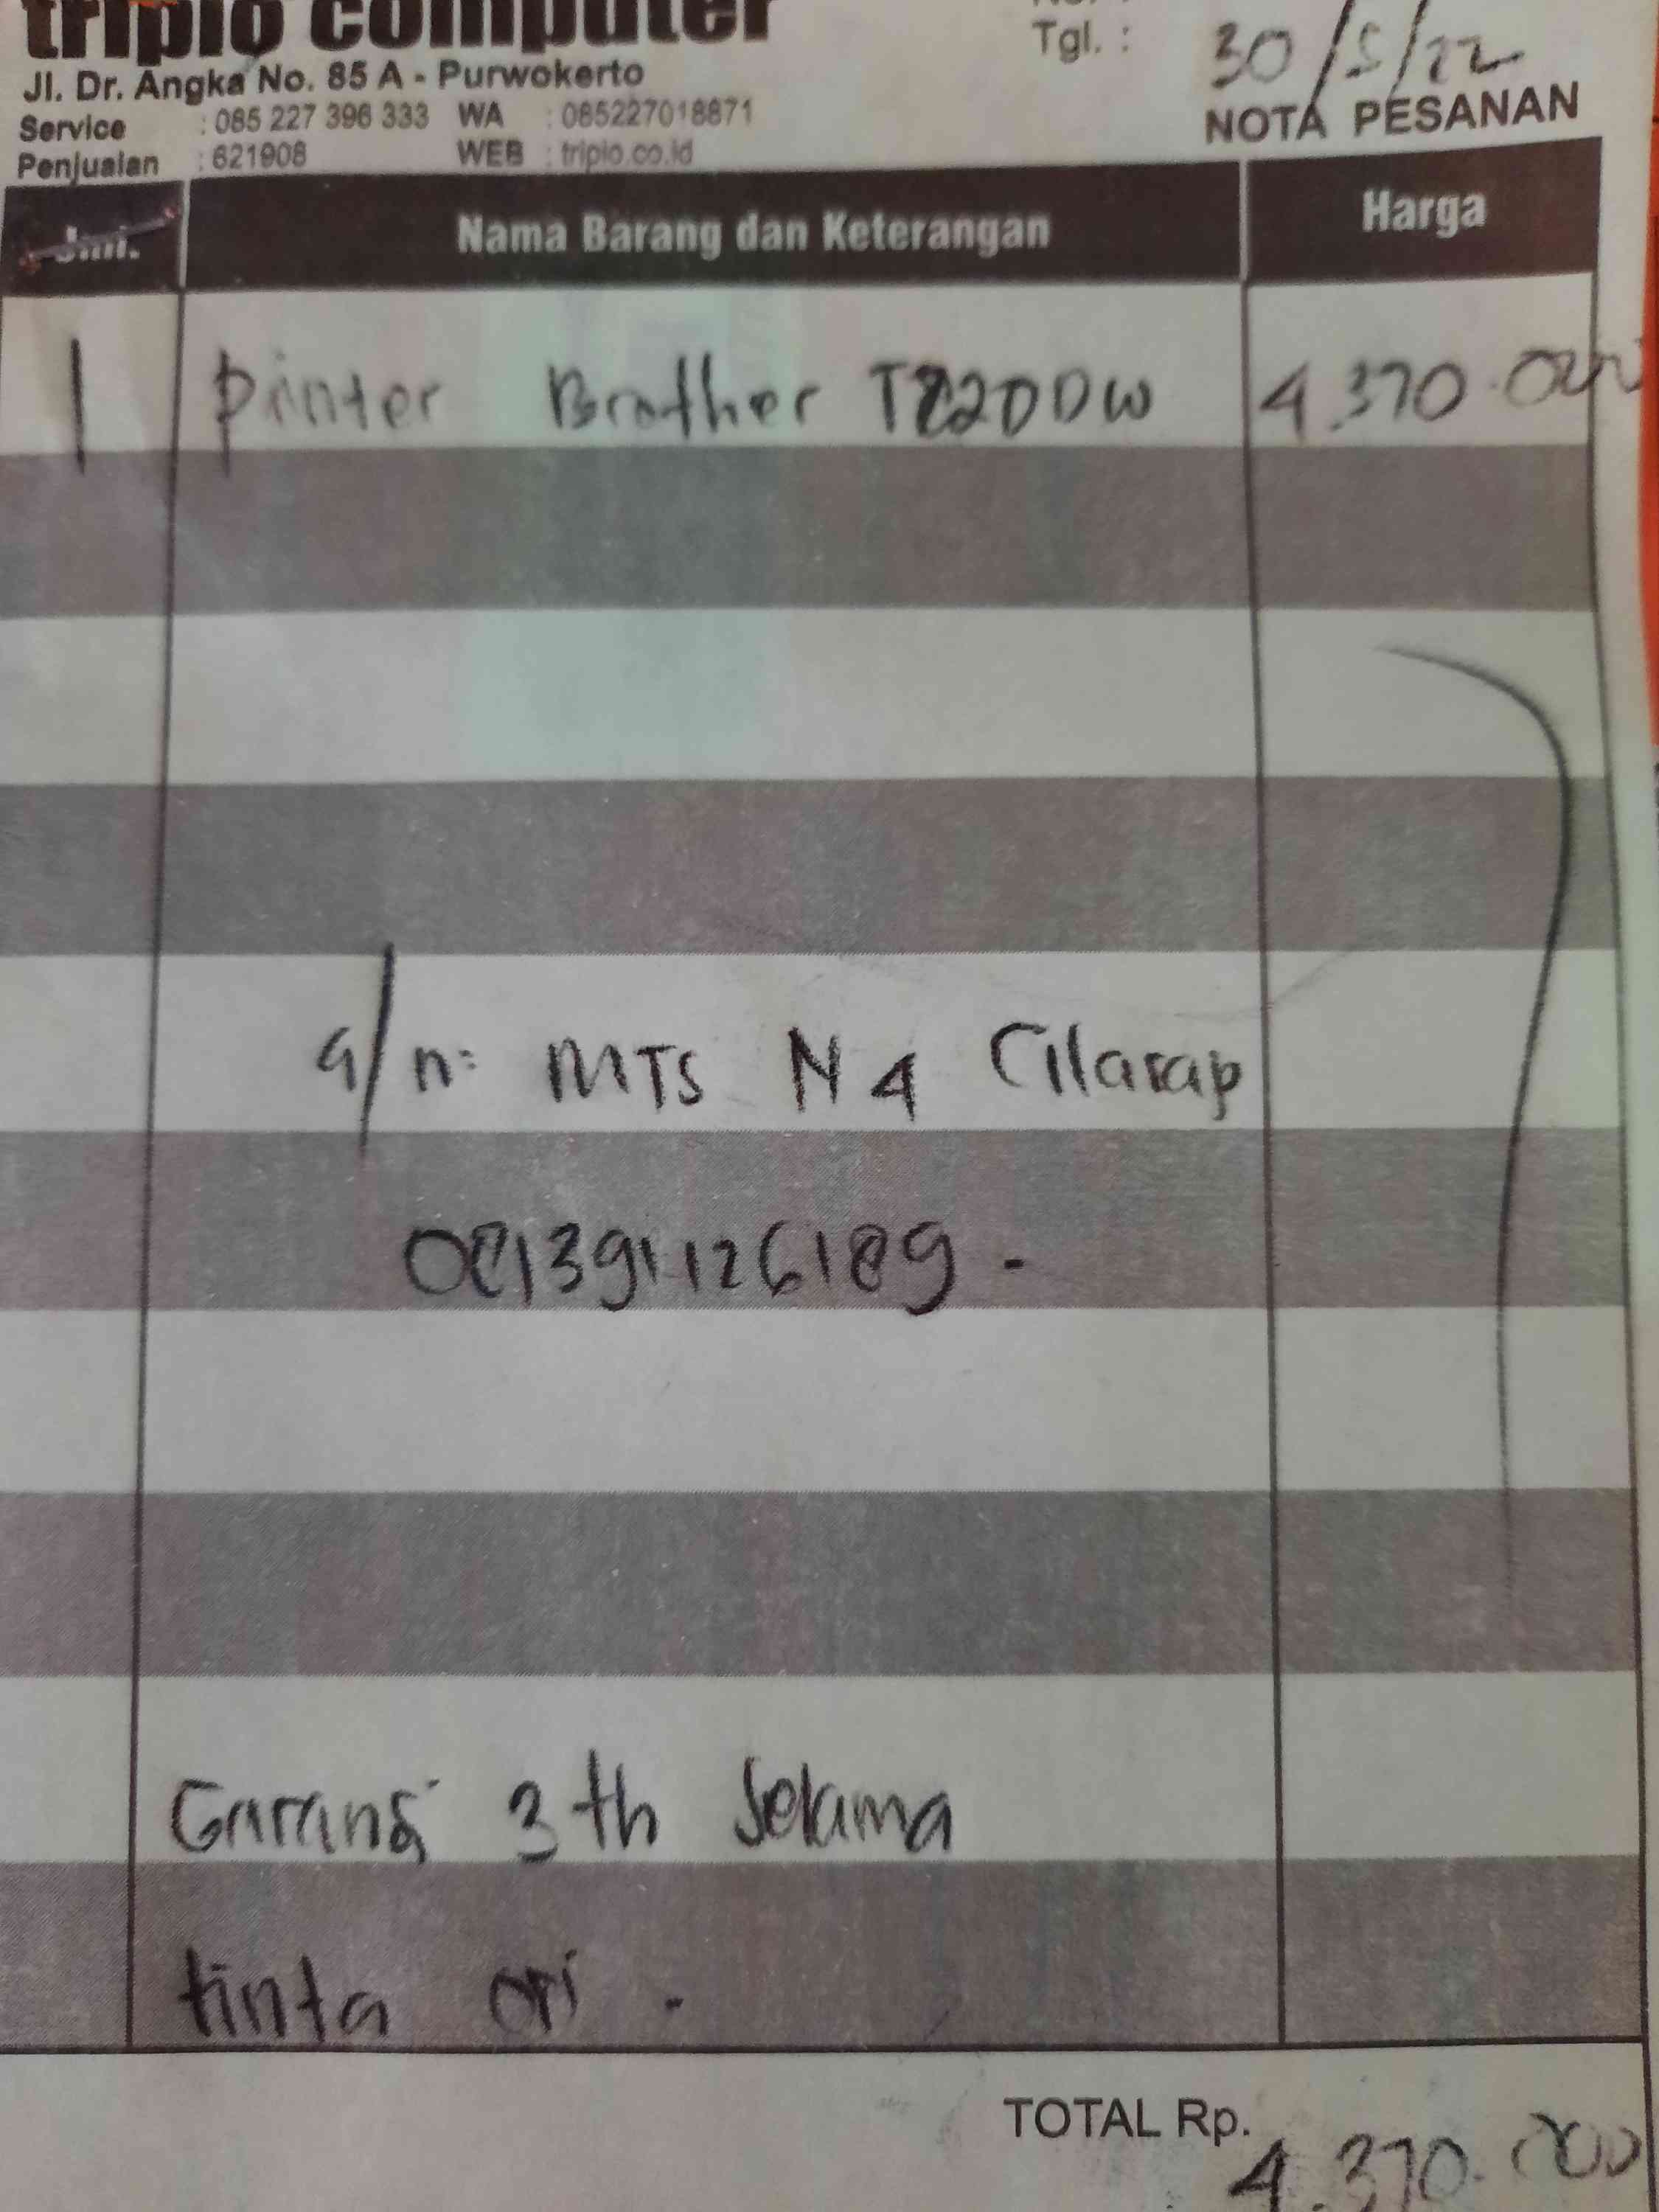 triplo computer
Jl. Dr. Angka No. 85 A - Purwokerto
Service : 085 227 396 333 WA : 085227018871
Penjualan : 621908 WEB : triplo.co.id
Tgl. : 30/5/22
NOTA PESANAN
Jml. Nama Barang dan Keterangan Harga
1 printer Brother T820DW 4.370.000
a/n: MTS N 4 Cilacap
081391126189 -
Garansi 3 th Selama
tinta ori .
TOTAL Rp. 4.370.000